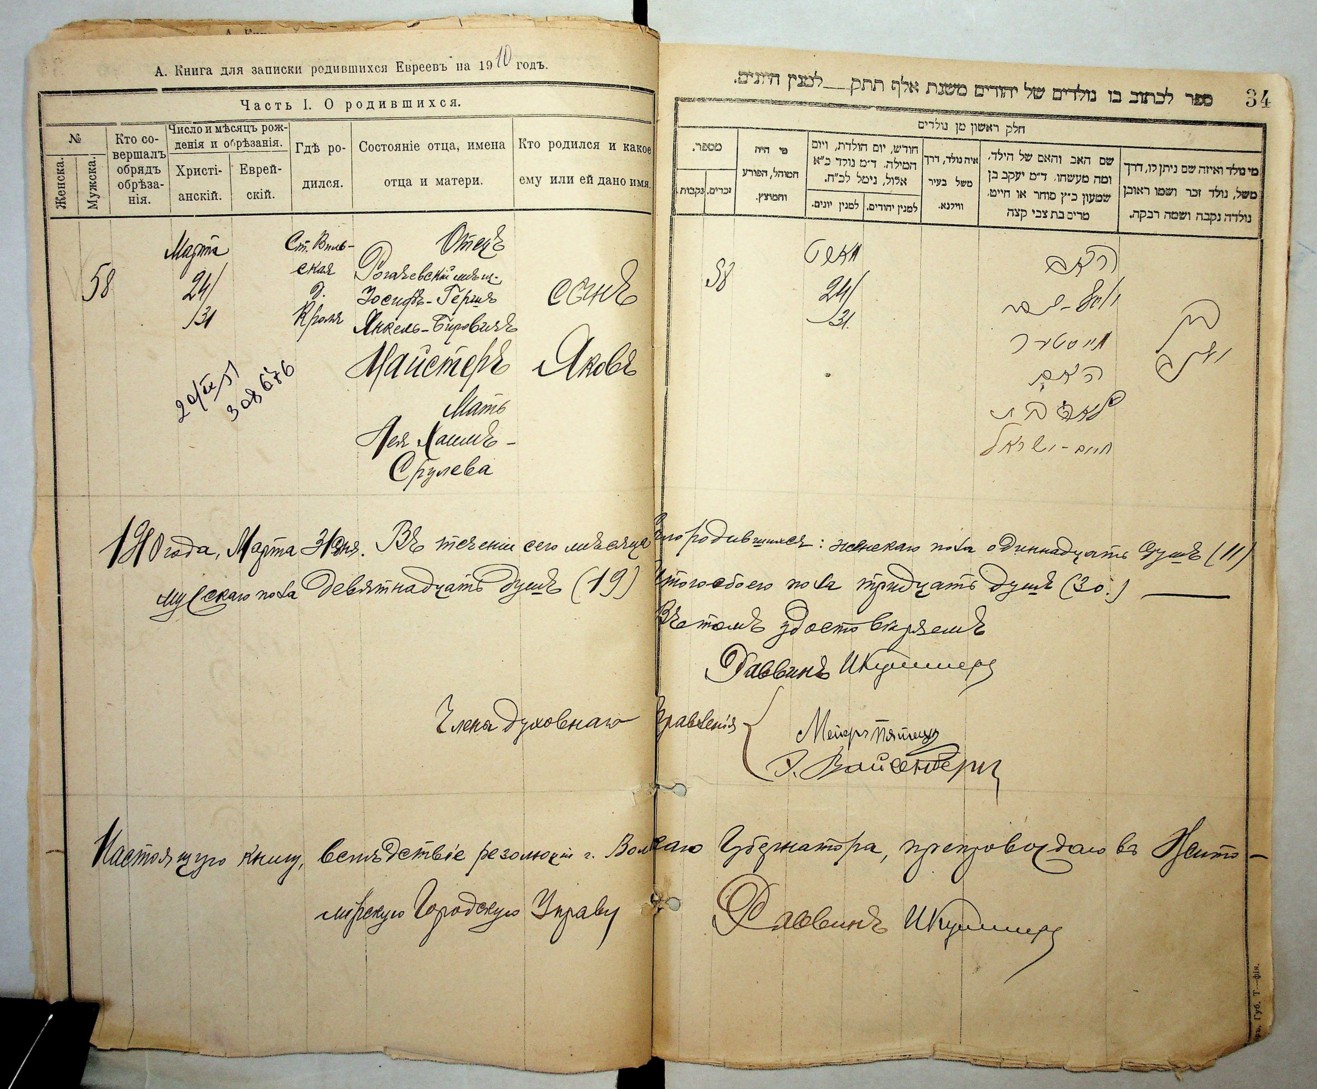 А. Книга для записки родившихся Евреевъ на 1910 годъ.
Часть I. О родившихся.
№
Женска.
Мужска.
Кто совершалъ обрядъ обрѣзанія.
Число и мѣсяцъ рожденія и обрѣзанія.
Христіанскій.
Еврейскій.
Гдѣ родился.
Состояніе отца, имена отца и матери.
Кто родился и какое ему или ей дано имя.
58
Марта
24/
31
Кроля
Отецъ
Рогачевскій мѣщ.
Іосифъ-Гершъ
Майстеръ
Мать
Лея Хаимъ-
Срулева
сынъ
Яковъ
308676
1910 года, Марта 31 дня. Въ теченіи сего мѣсяца
мужскаго пола девятнадцать душъ (19)
Члены духовнаго
Настоящую книгу, вслѣдствіе резолюціи г. Волынскаго Губернатора, препровождаю въ Жито-
мірскую Городскую Управу
Раввинъ
34
ספר לכתוב בו נולדים של יהודים משנת אלף תתק למנין היונים.
חלק ראשון מן נולדים
מספר.
זכרים.
נקבות.
מי היה המוהל, הפורע והמוצץ.
חודש, יום הולדת, ויום המילה. ד״מ נולד כ״א אלול, נימל לכ״ח.
למנין יונים.
למנין יהודים.
איה נולד, דרך משל בעיר ווילנא.
שם האב והאם של הילד, ומה מעשהו. ד״מ יעקב בן שמעון כ״ץ סוחר או חייט. מרים בת צבי קצה
מי נולד ואיזה שם ניתן לו, דרך משל, נולד זכר ושמו ראובן נולדה נקבה ושמה רבקה.
58
24/
31
האב
מייסטער
האם
חיים-ישראל
בן
יעקב
родившихся: женскаго пола одиннадцать душъ (11)
Итого обоего пола тридцать душъ (30.)
Въ томъ удостовѣряемъ
Раввинъ
Правленія